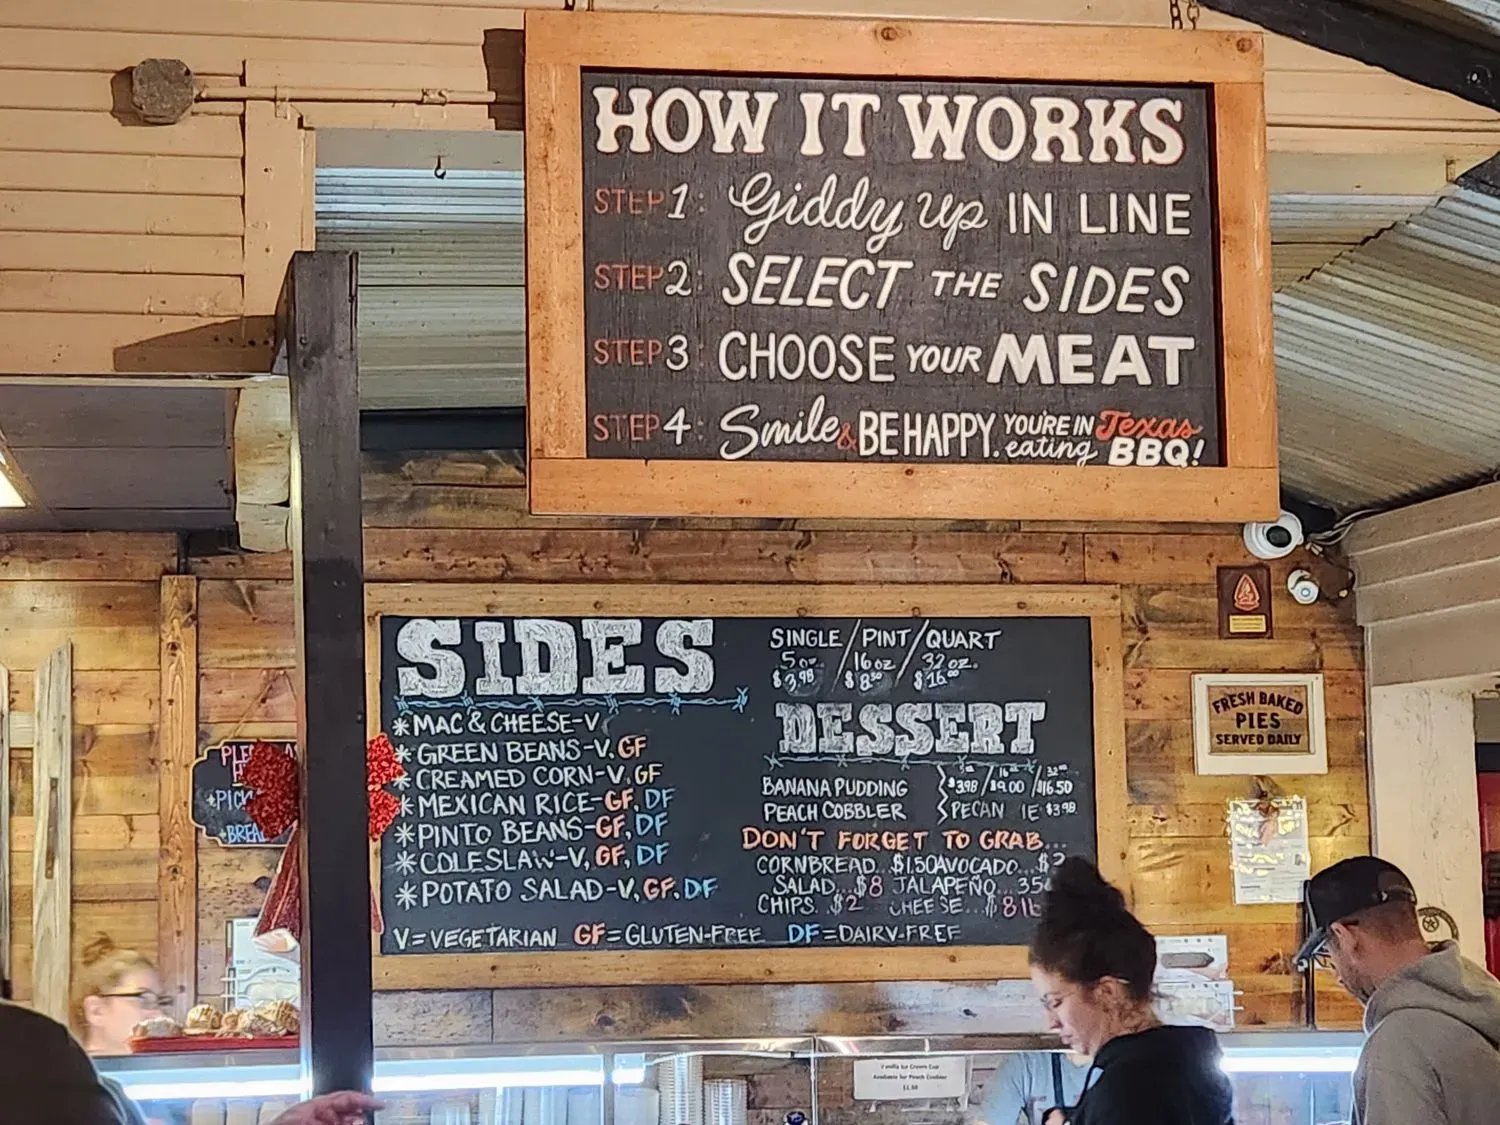 HOW IT WORKS
STEP 1: Giddy up IN LINE
STEP 2: SELECT THE SIDES
STEP 3: CHOOSE YOUR MEAT
STEP 4: Smile & BE HAPPY. YOU'RE IN Texas
eating BBQ!
SIDES
* MAC & CHEESE-V
* GREEN BEANS-V, GF
* CREAMED CORN-V, GF
* MEXICAN RICE-GF, DF
* PINTO BEANS-GF, DF
* COLESLAW-V, GF, DF
* POTATO SALAD-V, GF, DF
V=VEGETARIAN GF=GLUTEN-FREE DF=DAIRY-FREE
SINGLE/PINT/QUART
5oz/16oz/32oz.
$3.98 $8.50 $16.00
DESSERT
BANANA PUDDING $3.98/$9.00/$16.50
PEACH COBBLER PECAN IE $3.98
DON'T FORGET TO GRAB...
CORNBREAD...$1.50 AVOCADO...$2
SALAD...$8 JALAPEÑO...35
CHIPS..$2 CHEESE...$8 lb
FRESH BAKED
PIES
SERVED DAILY
PICK
Vanilla Ice Cream Cup
Available for Peach Cobbler
$1.50